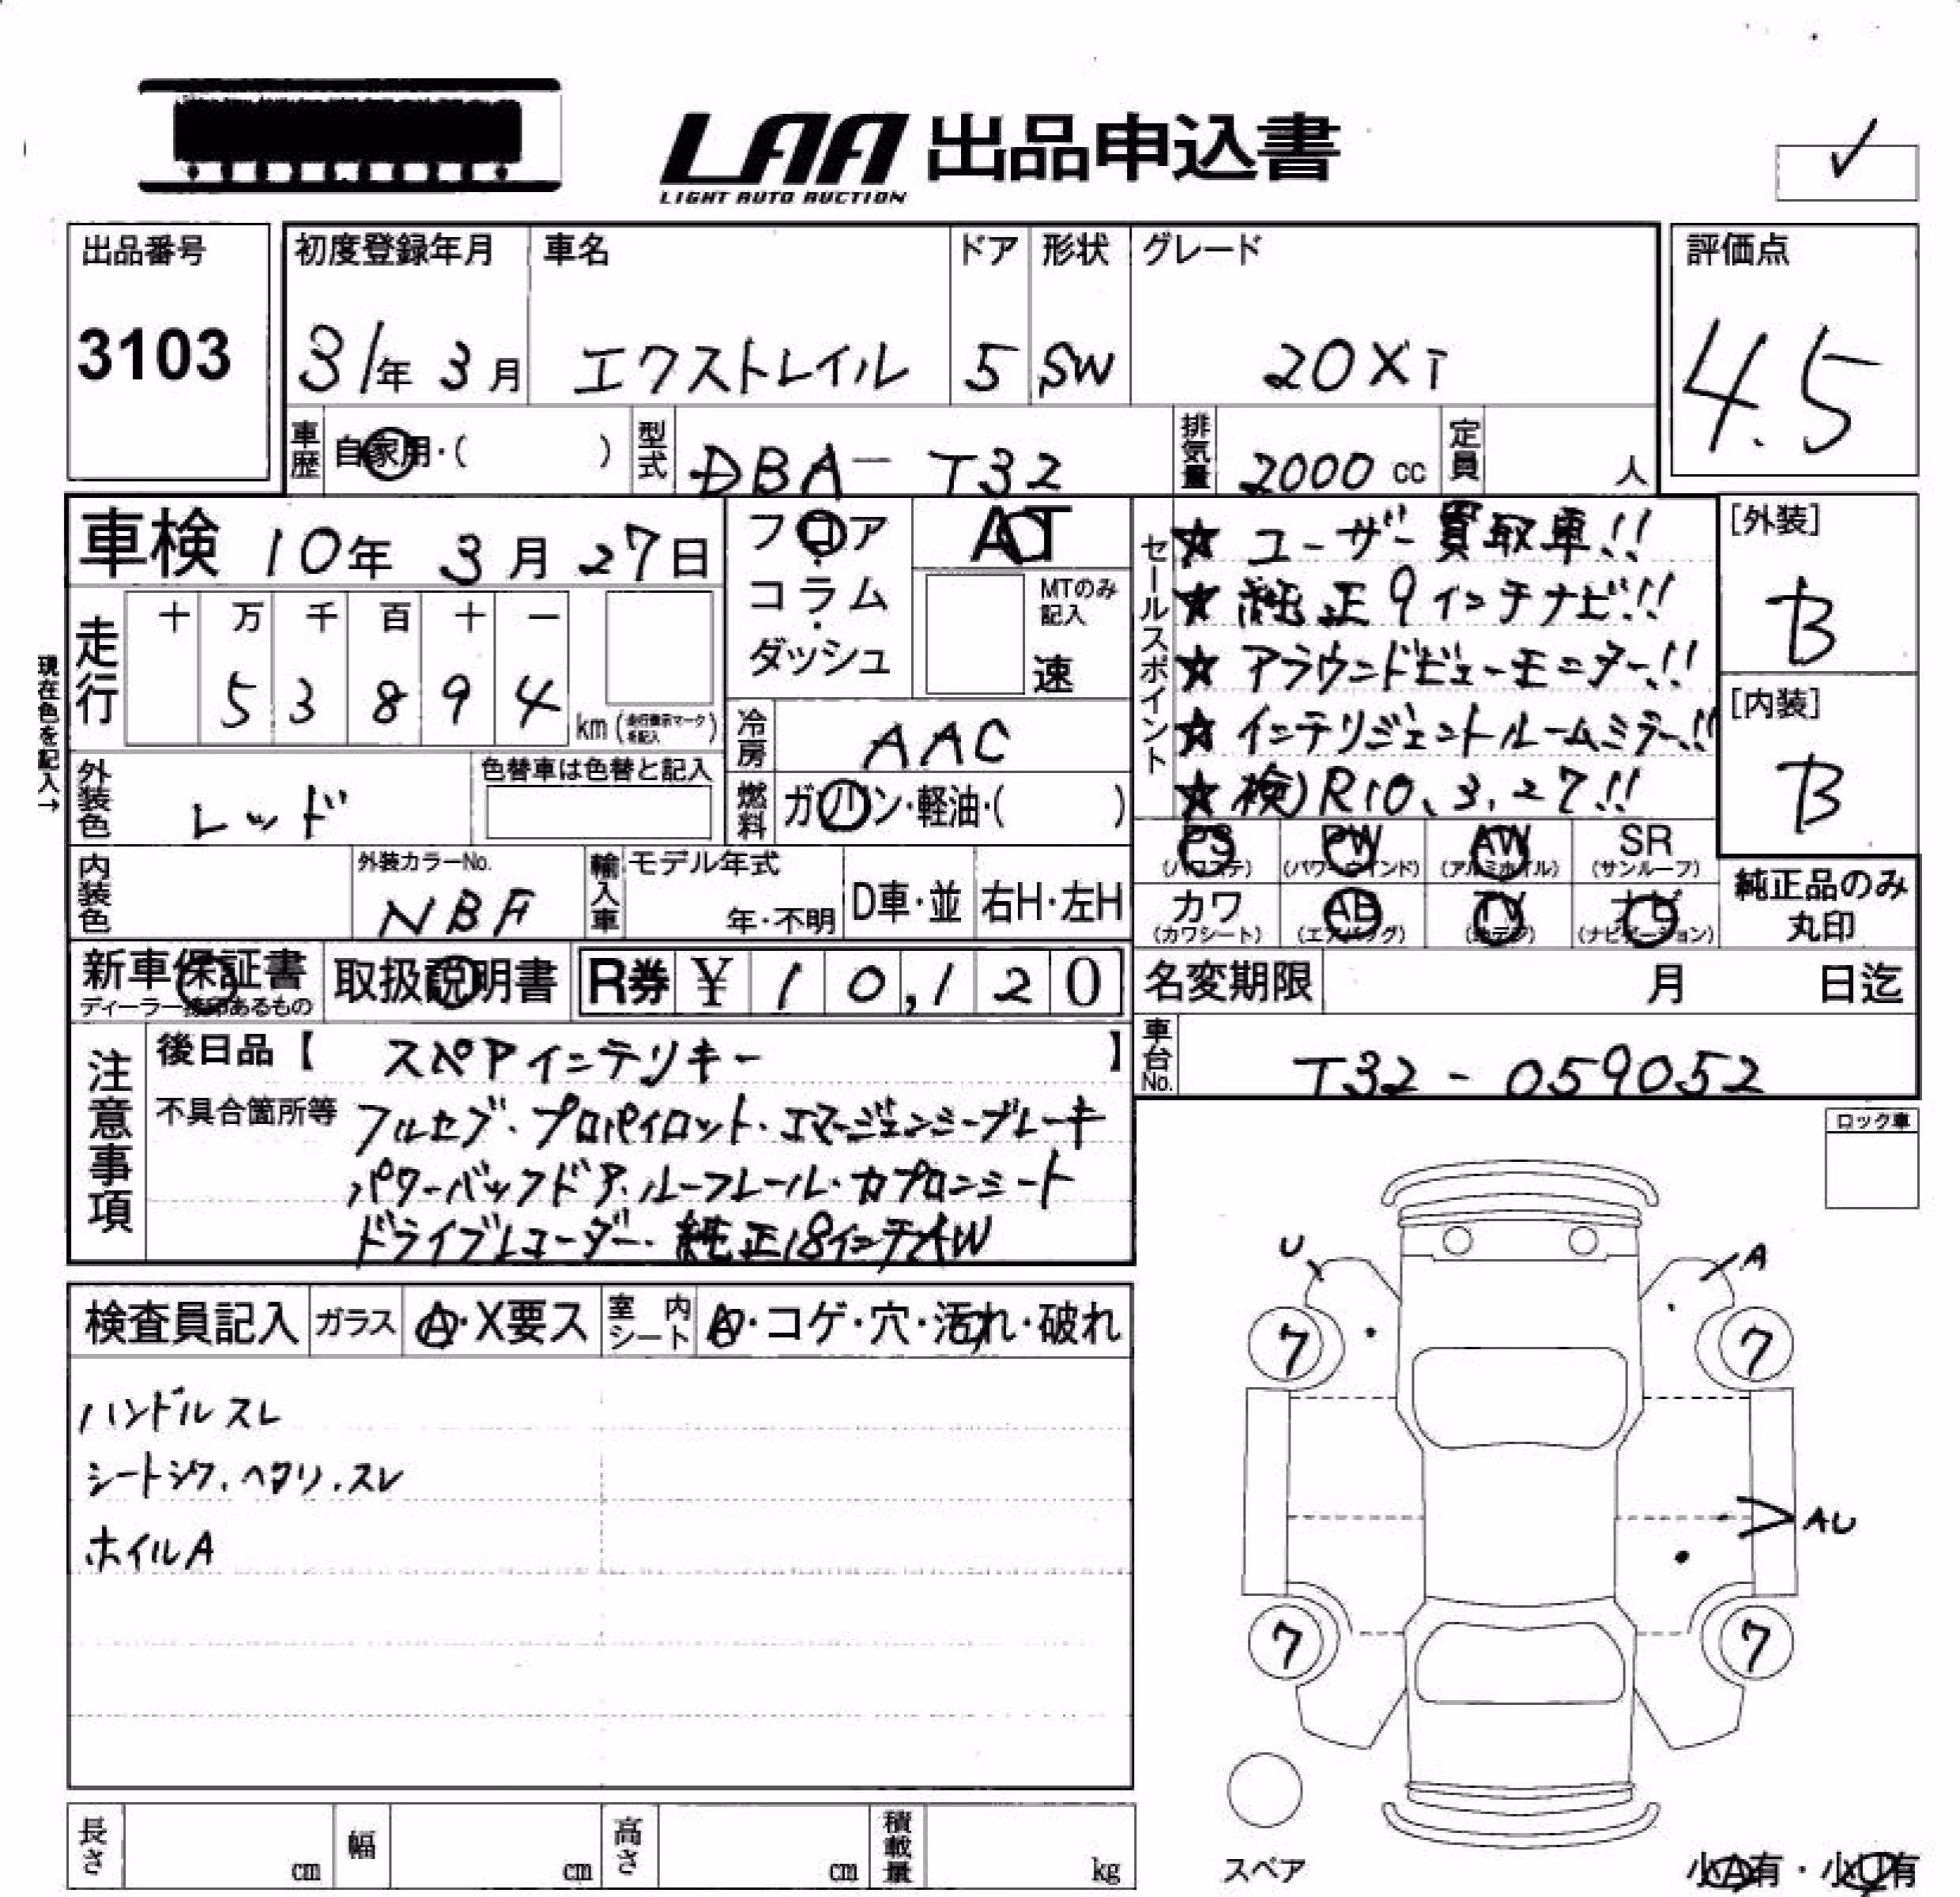 LAA 出品申込書
LIGHT AUTO AUCTION
✓
出品番号
3103
初度登録年月
31年 3月
車名
エクストレイル
ドア
5
形状
SW
グレード
20Xi
評価点
4.5
車歴 自家用・( )
型式 DBA-T32
排気量 2000 cc
定員 人
車検 10年 3月 27日
走行
十 万 千 百 十 一
5 3 8 9 4
km (走行表示マークを記入)
現在色を記入→
外装色 レッド
色替車は色替と記入
フロア・コラム・ダッシュ
AT
MTのみ記入
速
冷房 AAC
燃料 ガソリン・軽油・( )
セールスポイント
★ ユーザー買取車!!
★ 純正9インチナビ!!
★ アラウンドビューモニター!!
★ インテリジェントルームミラー!!
★ 検)R10.3.27!!
[外装]
B
[内装]
B
内装色
外装カラーNo.
NBF
輸入車 モデル年式
年・不明
D車・並
右H・左H
PS (パワステ)
PW (パワーウインド)
AW (アルミホイル)
SR (サンルーフ)
カワ (カワシート)
AB (エアバッグ)
TV (地デジ)
ナビ (ナビゲーション)
純正品のみ丸印
新車保証書
ディーラー捺印あるもの
取扱説明書
R券 ¥ 10,120
名変期限 月 日迄
車台No. T32-059052
注意事項
後日品【 スペアインテリキー 】
不具合箇所等 フルセグ・プロパイロット・エマージェンシーブレーキ
パワーバックドア・ルーフレール・カプロンシート
ドライブレコーダー・純正18インチAW
ロック車
検査員記入
ガラス A・X要ス
室内シート A・コゲ・穴・汚れ・破れ
ハンドルスレ
シートシワ.ヘタリ.スレ
ホイルA
U
A
7
7
AU
7
7
スペア
小A有・小U有
長さ cm
幅 cm
高さ cm
積載量 kg